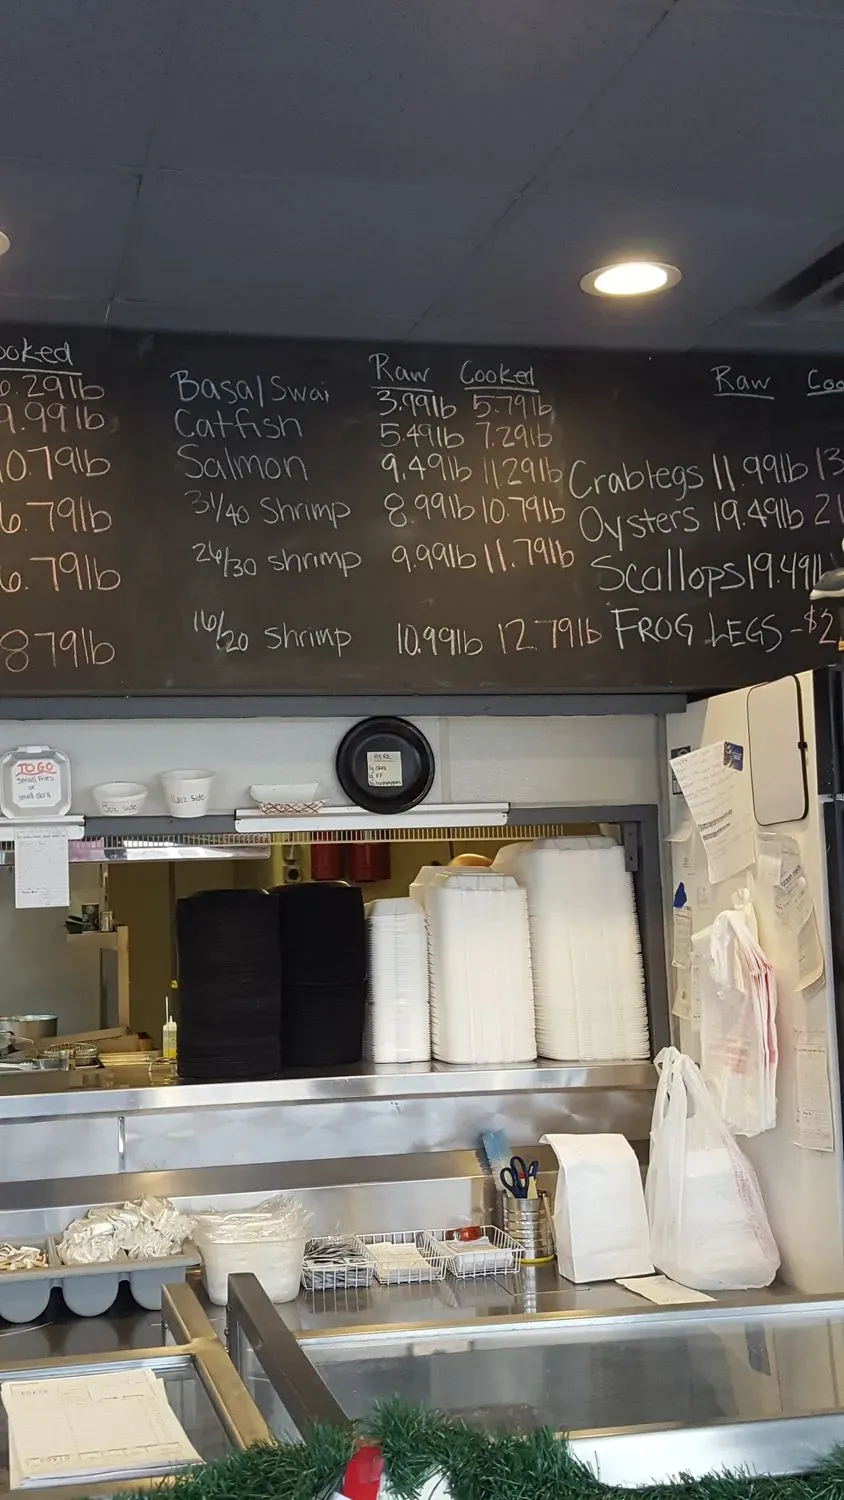 ooked
6.29lb
9.99lb
10.79lb
6.79lb
6.79lb
8 79lb
Raw Cooked
Basa/Swai 3.99lb 5.79lb
Catfish 5.49lb 7.29lb
Salmon 9.49lb 11.29lb
31/40 Shrimp 8.99lb 10.79lb
26/30 shrimp 9.99lb 11.79lb
16/20 shrimp 10.99lb 12.79lb
Raw Coo
Crablegs 11.99lb 13
Oysters 19.49lb 21
Scallops 19.49lb
FROG LEGS - $2
TO GO
small fries
or
small okra
8oz. side
side
HERE
FF